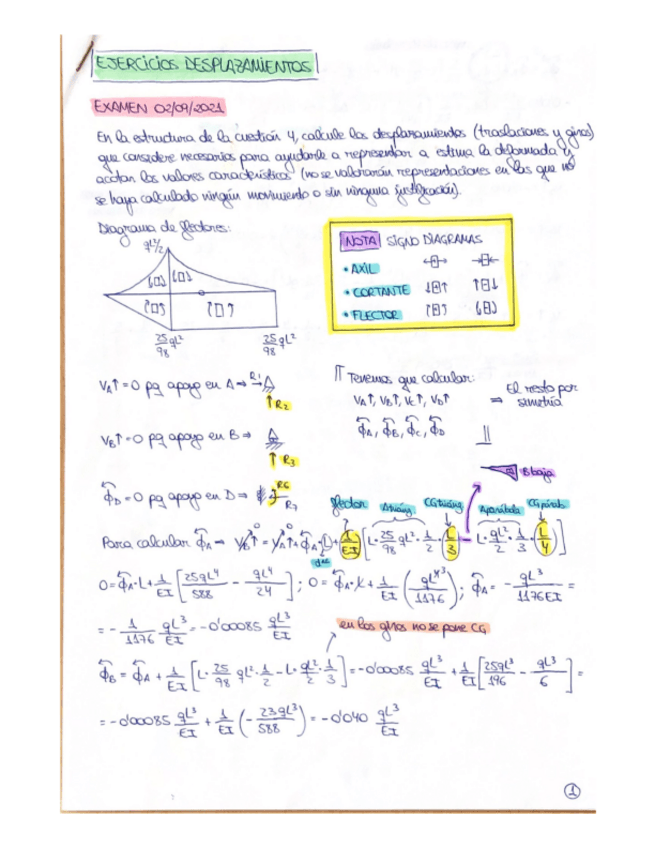 EJERCICIOS DESPLAZAMIENTOS
EXAMEN 02/09/2021
En la estructura de la cuestión 4, calcule los desplazamientos (traslaciones y giros)
que considere necesarios para ayudarle a representar a estima la deformada y
acotar los valores característicos (no se valorarán representaciones en las que no
se haya calculado ningún movimiento o sin ninguna justificación).
Diagrama de flectores:
qL²/2
25/98 qL² 25/98 qL²
NOTA SIGNO DIAGRAMAS
• AXIL
• CORTANTE
• FLECTOR
VA↑=0 pq apoyo en A ⇒ R1
↑R2
VB↑=0 pq apoyo en B ⇒
↑R3
ϕD=0 pq apoyo en D ⇒ R6
R7
Tenemos que calcular:
VA↑, VB↑, VC↑, VD↑
ϕA, ϕB, ϕC, ϕD
⇒ El resto por
simetría
B baja
flector Atriáng CG triáng Aparábola CG paráb
Para calcular ϕA → VB↑ = VA↑ + ϕA·L + 1/EI [L·25/98 qL²·1/2·L/3 − L·qL²/2·1/3·L/4]
0 = ϕA·L + 1/EI [25qL⁴/588 − qL⁴/24] ; 0 = ϕA·L + 1/EI (qL⁴³/1176) ; ϕA = − qL³/1176EI =
= − 1/1176 qL³/EI = −0'00085 qL³/EI
en los giros no se pone CG
ϕB = ϕA + 1/EI [L·25/98 qL²·1/2 − L·qL²/2·1/3] = −0'00085 qL³/EI + 1/EI [25qL³/196 − qL³/6] =
= −0'00085 qL³/EI + 1/EI (− 23qL³/588) = −0'040 qL³/EI
1